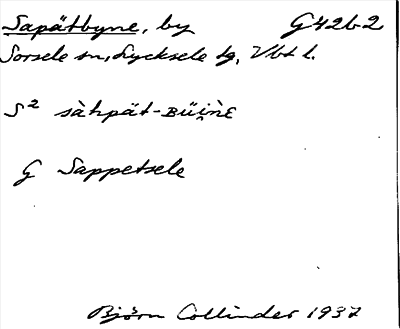 Sapätbyne, by G42b2
Sorsele sn, Lycksele tg, Vbt l.
S² sàhpät-ʙüi̯nᴇ̀
G Sappetsele
Björn Collinder 1937